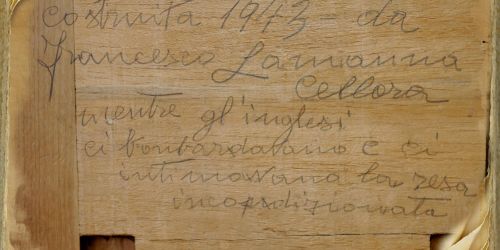 costruita 1943 - da
Francesco Lamanna
Cellora
mentre gl'inglesi
ci bombardavano e ci
intimavano la resa
incondizionata